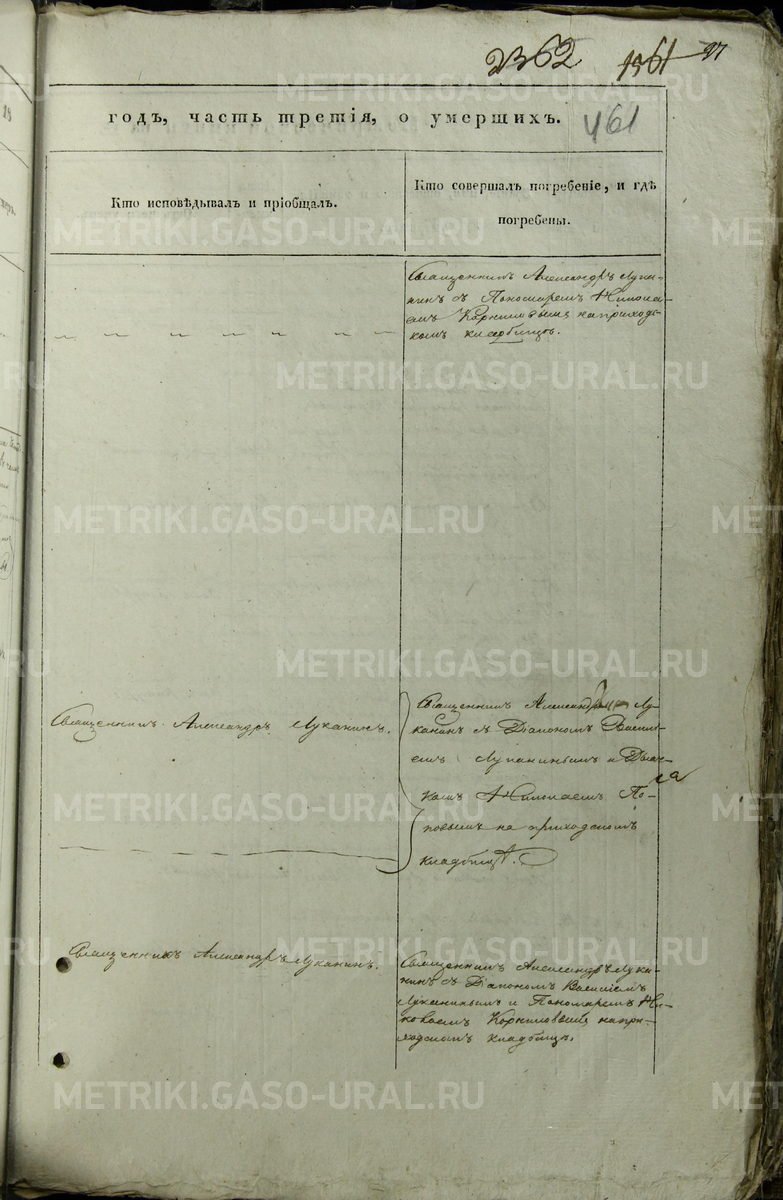 2362 1361 27
годъ, часть третія, о умершихъ. 461
Кто исповѣдывалъ и пріобщалъ.
Кто совершалъ погребеніе, и гдѣ
погребены.
Священникъ Александръ Лука-
нинъ съ Пономаремъ Никола-
емъ Корниловымъ на приход-
скомъ кладбищѣ.
Священникъ Александръ Луканинъ.
Священникъ Александръ Лу-
канинъ съ Діакономъ Васил-
емъ Луканинымъ и Дьяч-
комъ Николаемъ По-
повымъ на приходскомъ
кладбищѣ.
Священникъ Александръ Луканинъ.
Священникъ Александръ Лука-
нинъ съ Діакономъ Василіемъ
Луканинымъ и Пономаремъ Ни-
колаемъ Корниловымъ на при-
ходскомъ кладбищѣ.
METRIKI.GASO-URAL.RU